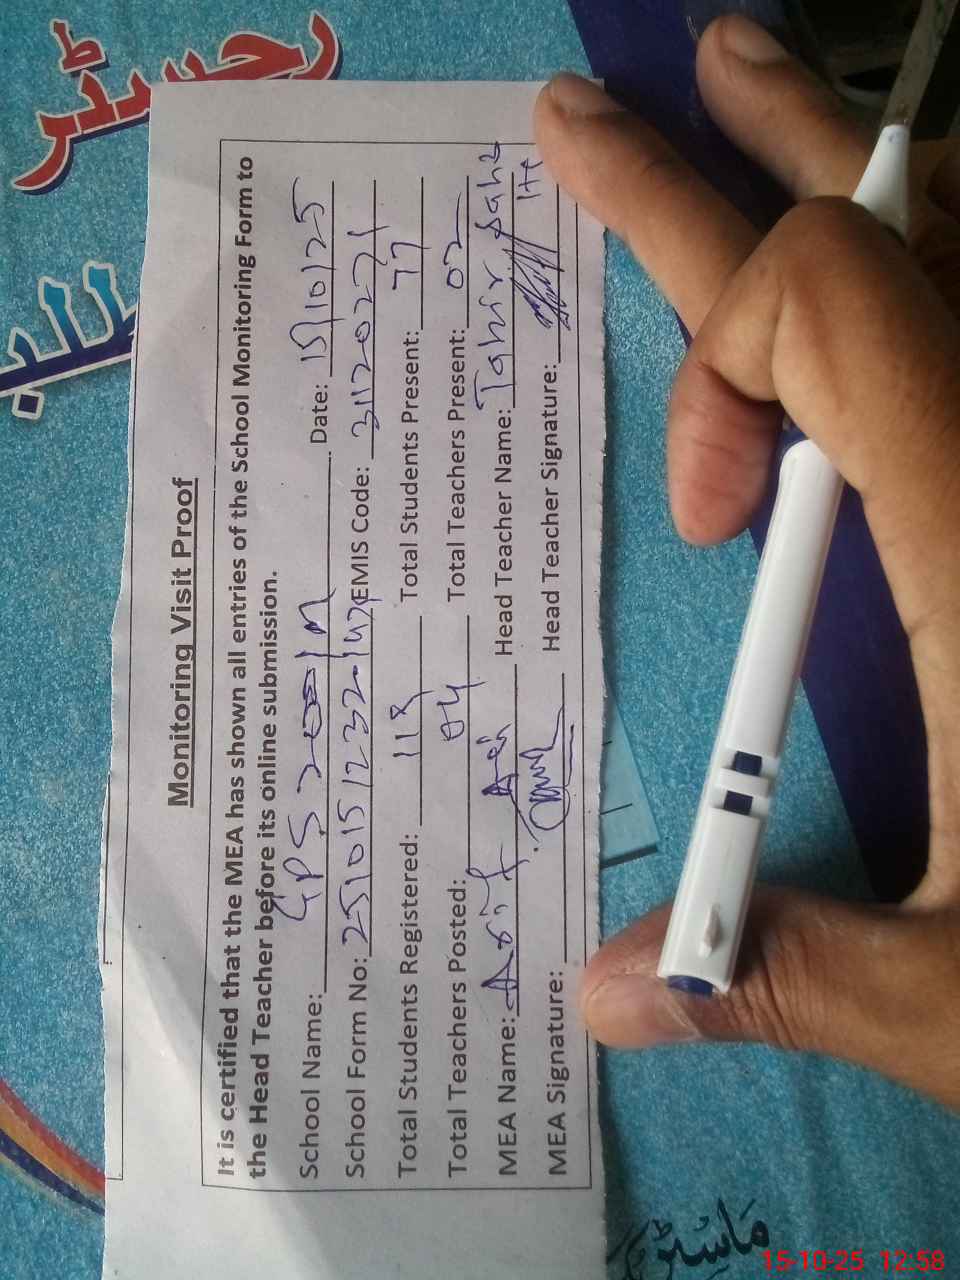 رجسٹر
Monitoring Visit Proof
It is certified that the MEA has shown all entries of the School Monitoring Form to
the Head Teacher before its online submission.
School Name: GPS Date: 15/10/25
School Form No: EMIS Code: 31120271
Total Students Registered: 118 Total Students Present: 77
Total Teachers Posted: 04 Total Teachers Present: 02
MEA Name: Asif Head Teacher Name: Tahir
MEA Signature: Head Teacher Signature:
15-10-25 12:58